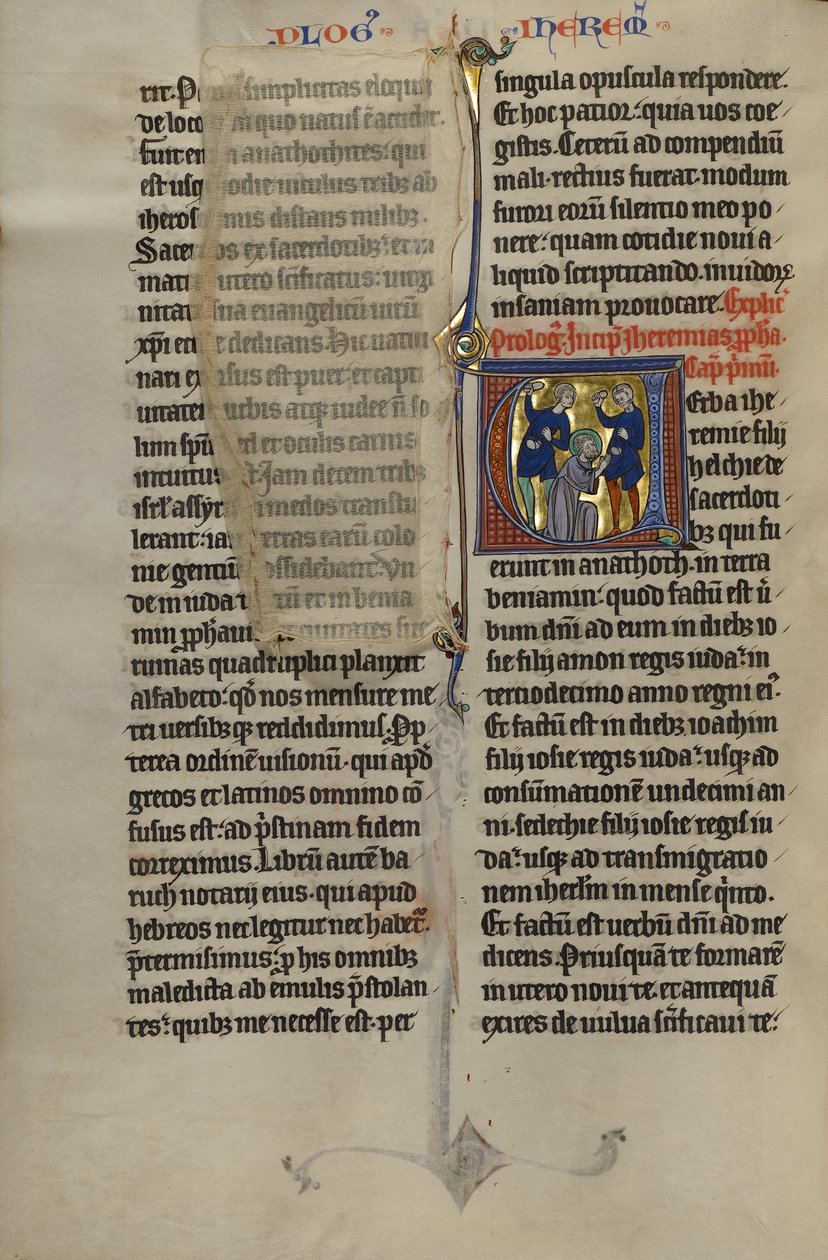 PLOG᾽ IHEREM̄
rit. P simplicitas eloquii
de loco in quo natus ē accidit.
fuit en anathothites: qui
est usq hodie uiculus tribꝫ ab
iheros mis distans milibꝫ.
Sacer os ex sacerdotibꝫ: et in
matri utero sc̄ificatus: uirgi
nitat sua euangelicū uirū
xp̄i ecc e dedicans. Hic uatici
nari ex sus est puer: et capti
uitatem urbis atqꝫ iudee n̄ so
lum sp̄u sed et oculis carnis
intuitus. Jam decem tribꝫ
isrl̄ assyr medos transtu
lerant: ia terras earū colo
nie gentiū possidebant. Vn
de in iuda t tū et in benia
min ꝓph̄aui ciuitatis sue
ruinas quadruplici planxit
alfabeto: qd̄ nos mensure me
tri uersibꝫqꝫ reddidimus. Prop
terea ordinē uisionū. qui apd̄
grecos et latinos omnino cō
fusus est: ad p̄stinam fidem
correximus. Librū autē ba
ruch notarij eius. qui apud
hebreos nec legitur nec habet᷑.
p̄termisimus: ꝓ his omnibꝫ
maledicta ab emulis p̄stolan
tes: quibꝫ me necesse est. per
singula opuscula respondere.
Et hoc patior: quia uos coe
gistis. Ceterū ad compendiū
mali. rectius fuerat. modum
furori eorū silentio meo po
nere: quam cotidie noui a
liquid scriptitando. inuidoꝝ
insaniam prouocare. Explic᾽
Prolog᾽. Incip̄ Jheremias ꝓph̄a.
Cap̄ p̄mū.
Uerba ihe
remie filij
helchie de
sacerdoti
bꝫ qui fu
erunt in anathoth. in terra
beniamin: quod factū est ū
bum dn̄i ad eum in diebꝫ io
sie filij amon regis iuda: in
tertiodecimo anno regni ei᾽.
Et factū est in diebꝫ ioachim
filij iosie regis iuda: usqꝫ ad
consūmationē undecimi an
ni. sedechie filij iosie regis iu
da: usqꝫ ad transmigratio
nem iherl̄m in mense q̄nto.
Et factū est uerbū dn̄i ad me
dicens. Priusquā te formarē
in utero noui te. et antequā
exires de uulua sc̄ificaui te: